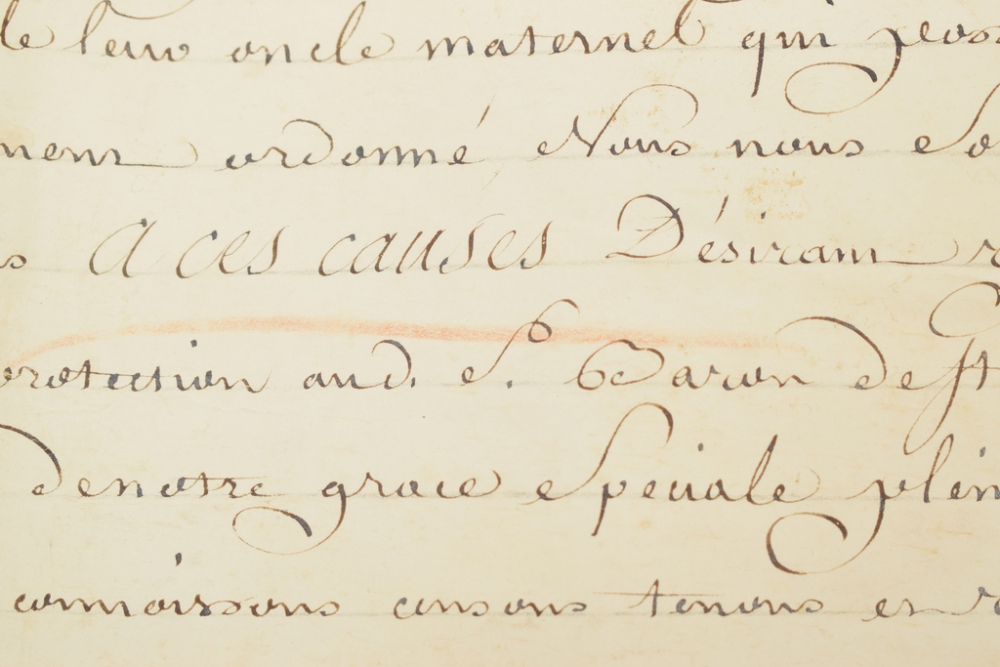 de leur oncle maternel qui poss
ment ordonné Nous nous So
s A ces causes Désirant r
protection aud. S. Baron de St
De notre grace Speciale plein
connoissons avons tenons et r